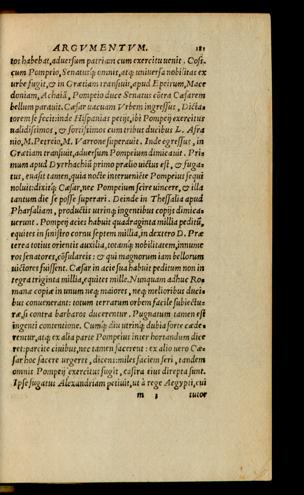 ARGVMENTVM. 181
tos habebat, aduersum patriam cum exercitu uenit. Cosi,
cum Pompeio, Senatusq́; omnis, atq; uniuersa nobilitas ex
urbe fugit, & in Græciam transiuit, apud Epeirum, Mace
doniam, Achaiã, Pompeio duce Senatus cõtra Cæsarem
bellum parauit. Cæsar uacuam Vrbem ingressus, Dicta-
torem se fecit: inde Hispanias petijt, ibi Pompeij exercitus
ualidissimos, & fortissimos cum tribus ducibus L. Afra
nio, M. Petreio, M. Varrone superauit. Inde egressus, in
Græciam transiuit, aduersum Pompeium dimicauit. Pri-
mum apud Dyrrhachiũ primo prælio uictus est, & fuga-
tus, euasit tamen, quia nocte interueniẽte Pompeius sequi
noluit: dixitq́; Cæsar, nec Pompeium scire uincere, & illa
tantum die se posse superari. Deinde in Thessalia apud
Pharsaliam, productis utrinq; ingentibus copijs dimica-
uerunt. Pompeij acies habuit quadraginta millia peditũ,
equites in sinistro cornu septem millia, in dextero D. Præ
terea totius orientis auxilia, totamq́; nobilitatem, innume
ros senatores, cõsulareis: & qui magnorum iam bellorum
uictores fuissent. Cæsar in acie sua habuit peditum non in
tegra triginta millia, equites mille. Nunquam adhuc Ro
manæ copiæ in unum neq; maiores, neq; melioribus duci-
bus conuenerant: totum terrarum orbem facile subiectu-
ræ, si contra barbaros ducerentur. Pugnatum tamen est
ingenti contentione. Cumq́; diu utrinq; dubia sorte cæde-
rentur, atq; ex alia parte Pompeius inter hortandum dice
ret: parcite ciuibus, nec tamen facerent: ex alio uero Cæ-
sar hoc facere urgeret, dicens: miles faciem feri, tandem
omnis Pompeij exercitus fugit, castra eius direpta sunt.
Ipse fugatus Alexandriam petiuit, ut à rege Aegypti, cui
m 3 tutor